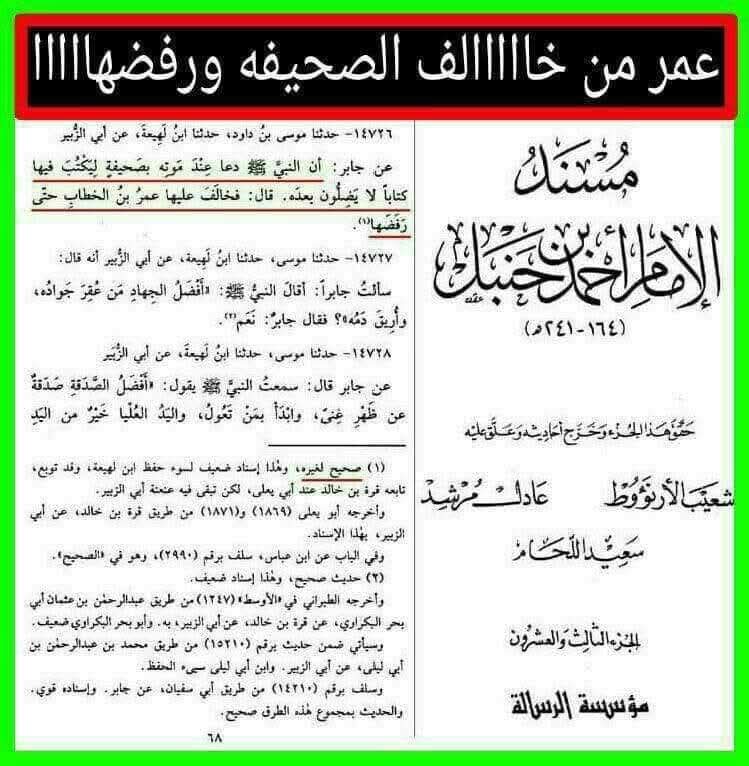 عمر من خااااالف الصحيفه ورفضهااااا
مُسْنَدُ
الإمَامِ أحْمَدَ بنِ حَنْبَل
(١٦٤-٢٤١هـ)
حَقَّقَ هٰذَا الجُزءَ وَخَرَّجَ أحَاديثَهُ وَعَلَّقَ عَلَيْه
شعَيب الأرنَؤوط عَادل مُرشد
سَعيد اللحَّام
الجزء الثالث والعشرون
مؤسسة الرسالة
١٤٧٢٦- حدثنا موسى بنُ داود، حدثنا ابنُ لَهِيعةَ، عن أبي الزُّبير
عن جابر: أن النبيَّ ﷺ دعا عِنْدَ مَوتِه بصَحيفةٍ لِيَكْتُبَ فيها
كتاباً لا يَضِلُّون بعدَه. قال: فخالَفَ عليها عمرُ بنُ الخطابِ حتَّى
رَفَضَها⁽¹⁾.
١٤٧٢٧- حدثنا موسى، حدثنا ابنُ لَهِيعة، عن أبي الزُّبير أنه قال:
سألتُ جابراً: أقالَ النبيُّ ﷺ: «أَفْضَلُ الجِهادِ مَن عُقِرَ جَوادُه،
وأُرِيقَ دَمُه»؟ فقال جابرٌ: نَعَم⁽²⁾.
١٤٧٢٨- حدثنا موسى، حدثنا ابنُ لَهِيعة، عن أبي الزُّبير
عن جابر قال: سمعتُ النبيَّ ﷺ يقول: «أَفْضَلُ الصَّدَقةِ صَدَقةٌ
عن ظَهْرِ غِنىً، وابْدَأْ بمَنْ تَعُولُ، واليَدُ العُلْيا خَيْرٌ من اليَدِ
(١) صحيح لغيره، وهٰذا إسناد ضعيف لسوء حفظ ابن لهيعة، وقد توبع،
تابعه قرة بن خالد عند أبي يعلى، لكن تبقى فيه عنعنة أبي الزبير.
وأخرجه أبو يعلى (١٨٦٩) و(١٨٧١) من طريق قرة بن خالد، عن أبي
الزبير، بهٰذا الإسناد.
وفي الباب عن ابن عباس، سلف برقم (٢٩٩٠)، وهو في «الصحيح».
(٢) حديث صحيح، وهٰذا إسناد ضعيف.
وأخرجه الطبراني في «الأوسط» (١٢٤٧) من طريق عبدالرحمٰن بن عثمان أبي
بحر البكراوي، عن قرة بن خالد، عن أبي الزبير، به. وأبو بحر البكراوي ضعيف.
وسيأتي ضمن حديث برقم (١٥٢١٠) من طريق محمد بن عبدالرحمٰن بن
أبي ليلى، عن أبي الزبير. وابن أبي ليلى سيىء الحفظ.
وسلف برقم (١٤٢١٠) من طريق أبي سفيان، عن جابر. وإسناده قوي.
والحديث بمجموع هٰذه الطرق صحيح.
٦٨